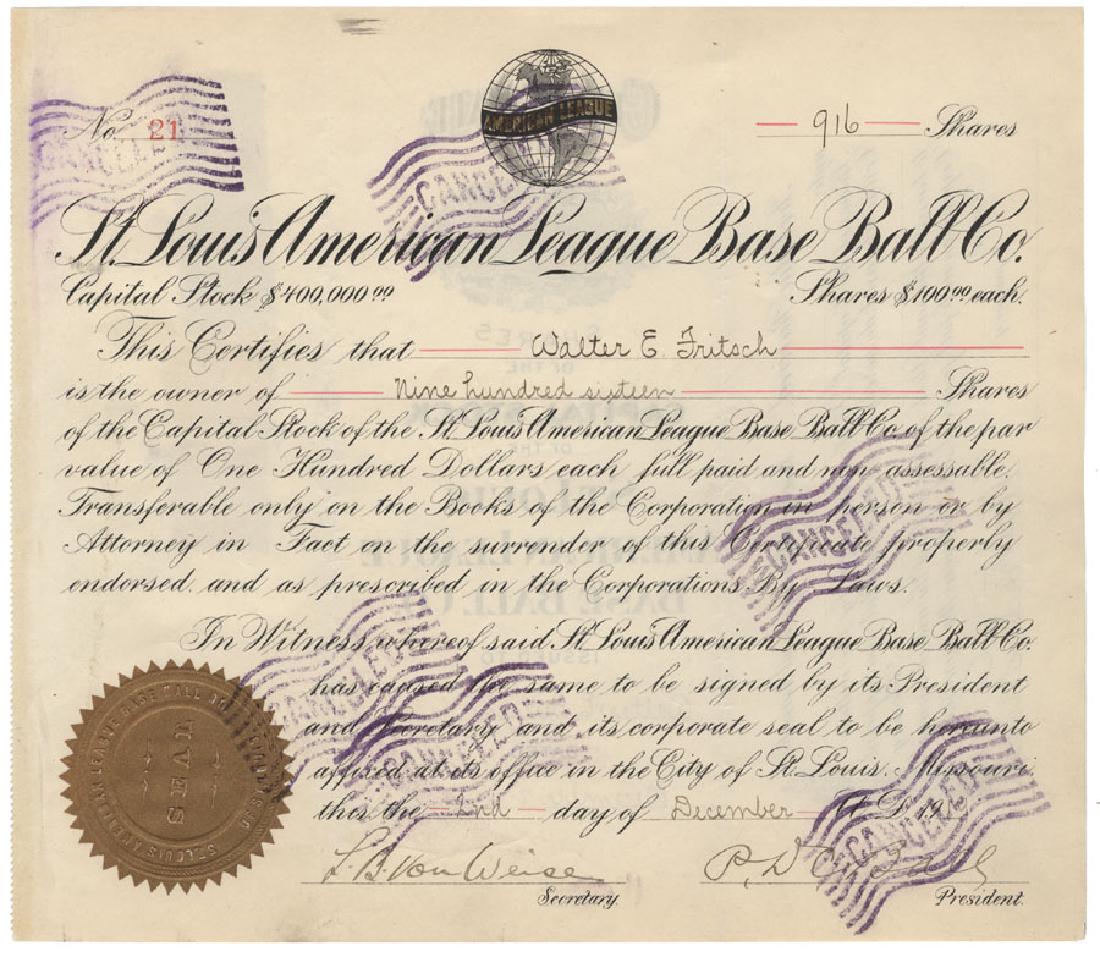 No. 21
AMERICAN LEAGUE
916 Shares
St. Louis American League Base Ball Co.
Capital Stock $400,000.00
Shares $100.00 each.
This Certifies that Walter E. Fritsch
is the owner of Nine hundred sixteen Shares
of the Capital Stock of the St. Louis American League Base Ball Co. of the par
value of One Hundred Dollars each full paid and non assessable.
Transferable only on the Books of the Corporation in person or by
Attorney in Fact on the surrender of this Certificate properly
endorsed and as prescribed in the Corporations By Laws.
In Witness whereof said St. Louis American League Base Ball Co.
has caused the same to be signed by its President
and Secretary and its corporate seal to be hereunto
affixed at its office in the City of St. Louis, Missouri
this the 2nd day of December A.D. 19
L. B. von Weise
Secretary.
President.
SEAL
CANCELLED
CANCELLED
CANCELLED
CANCELLED
CANCELLED
CANCELLED